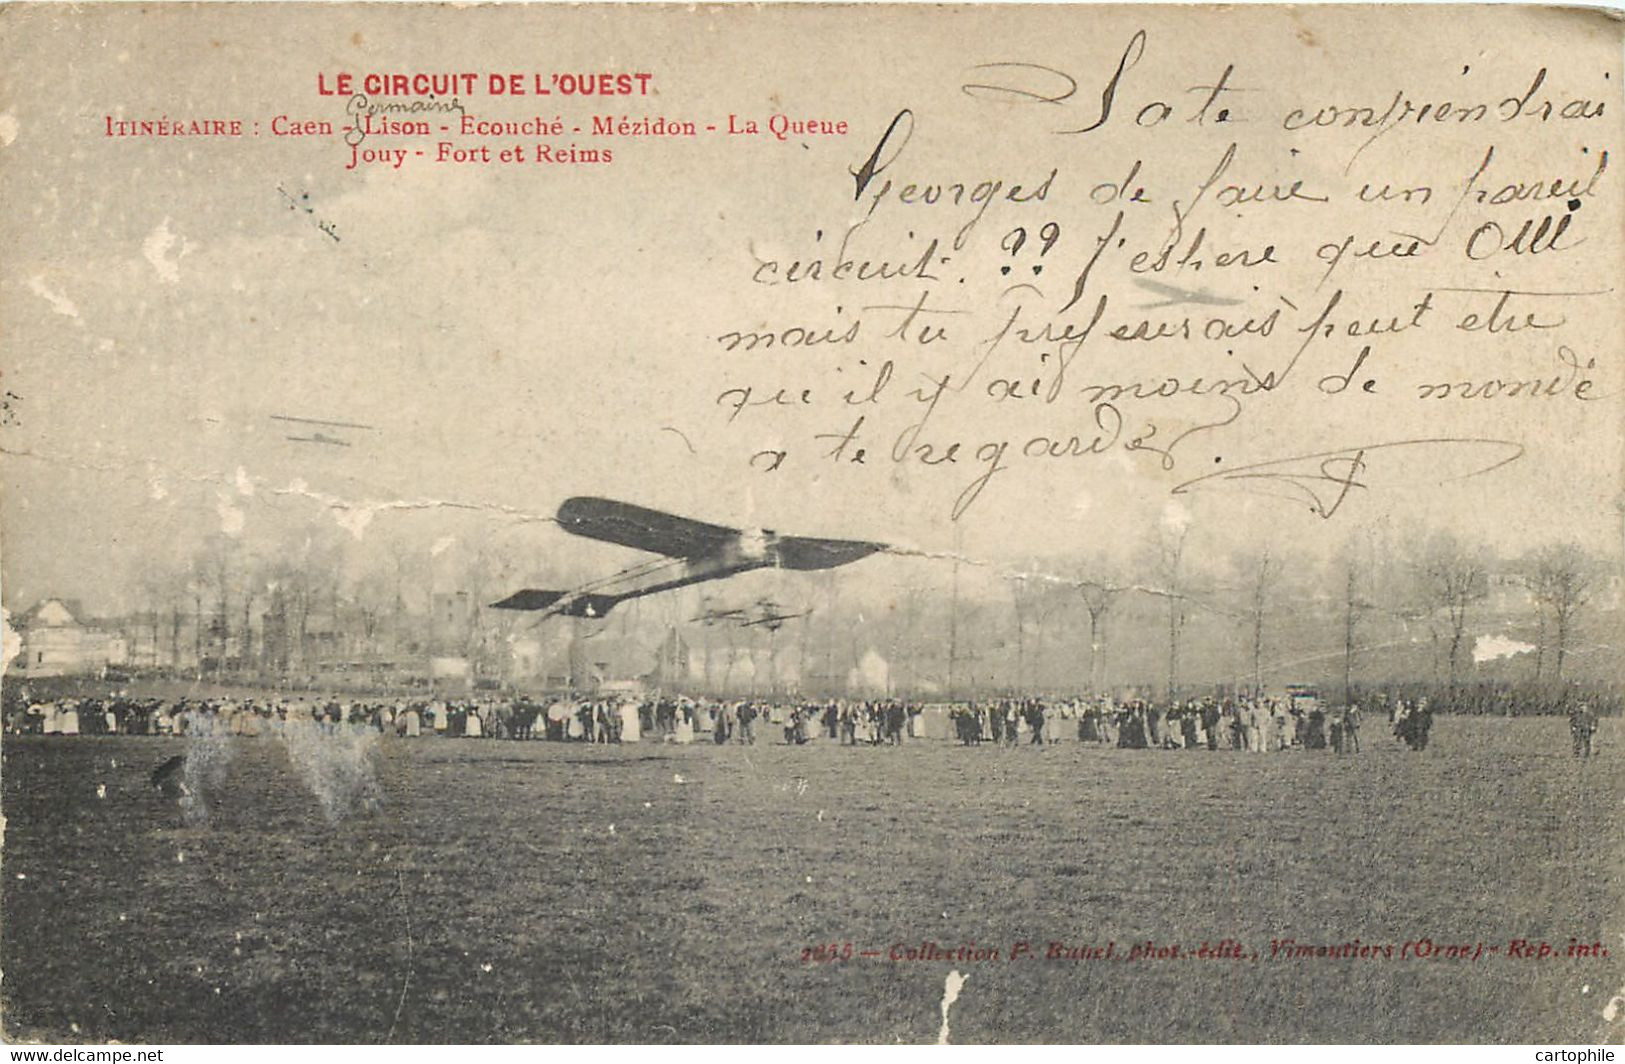 LE CIRCUIT DE L'OUEST
Germaine
ITINÉRAIRE : Caen - Lison - Ecouché - Mézidon - La Queue
Jouy - Fort et Reims
Sa te conpriendrai
Georges de faire un pareil
circuit. ?? J'espere que OUI
mais tu prefererais peut etre
qu'il y ai moins de monde
a te regarder.
2655 - Collection P. Bunel, phot.-édit., Vimoutiers (Orne) - Rep. int.
cartophile